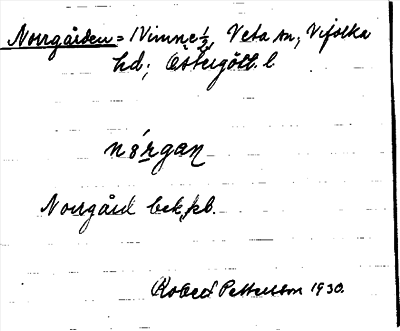 Norrgården = Nimne ½, Veta sn, Vifolka
hd; Östergötl. l
nórgan
Norrgård bek.kb.
Robert Pettersson 1930.